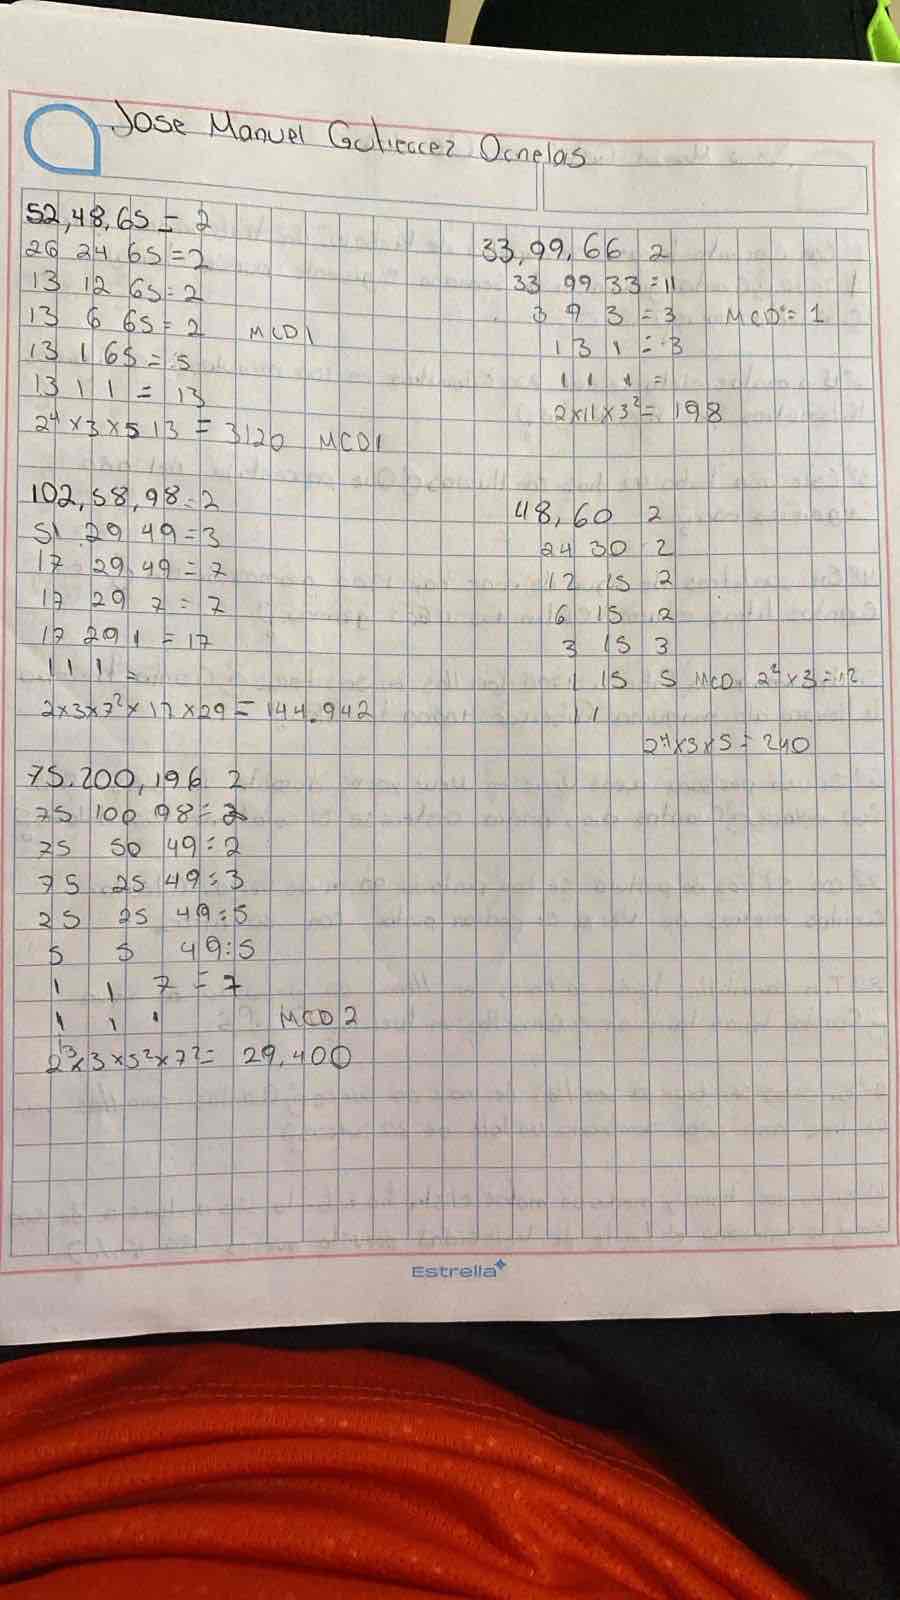 Jose Manuel Gutierrez Ornelas
52,48,65 = 2
26 24 65 = 2
13 12 65 = 2
13 6 65 = 2 MCD1
13 1 65 = 5
13 1 1 = 13
2⁴ x3 x5 13 = 3120 MCD1
102,58,98 = 2
51 29 49 = 3
17 29 49 = 7
17 29 7 = 7
17 29 1 = 17
1 1 1 =
2x3x7² x 17 x29 = 144.942
75,200,196 2
75 100 98 = 2
75 50 49 = 2
75 25 49 = 3
25 25 49 = 5
5 5 49 = 5
1 1 7 = 7
1 1 1 MCD 2
2³x3x5²x7² = 29,400
33,99,66 2
33 99 33 = 11
3 9 3 = 3 MCD = 1
1 3 1 = 3
1 1 1 =
2x11x3² = 198
48,60 2
24 30 2
12 15 2
6 15 2
3 15 3
1 15 5 MCD 2²x3=12
1 1
2⁴x3x5 = 240
Estrella